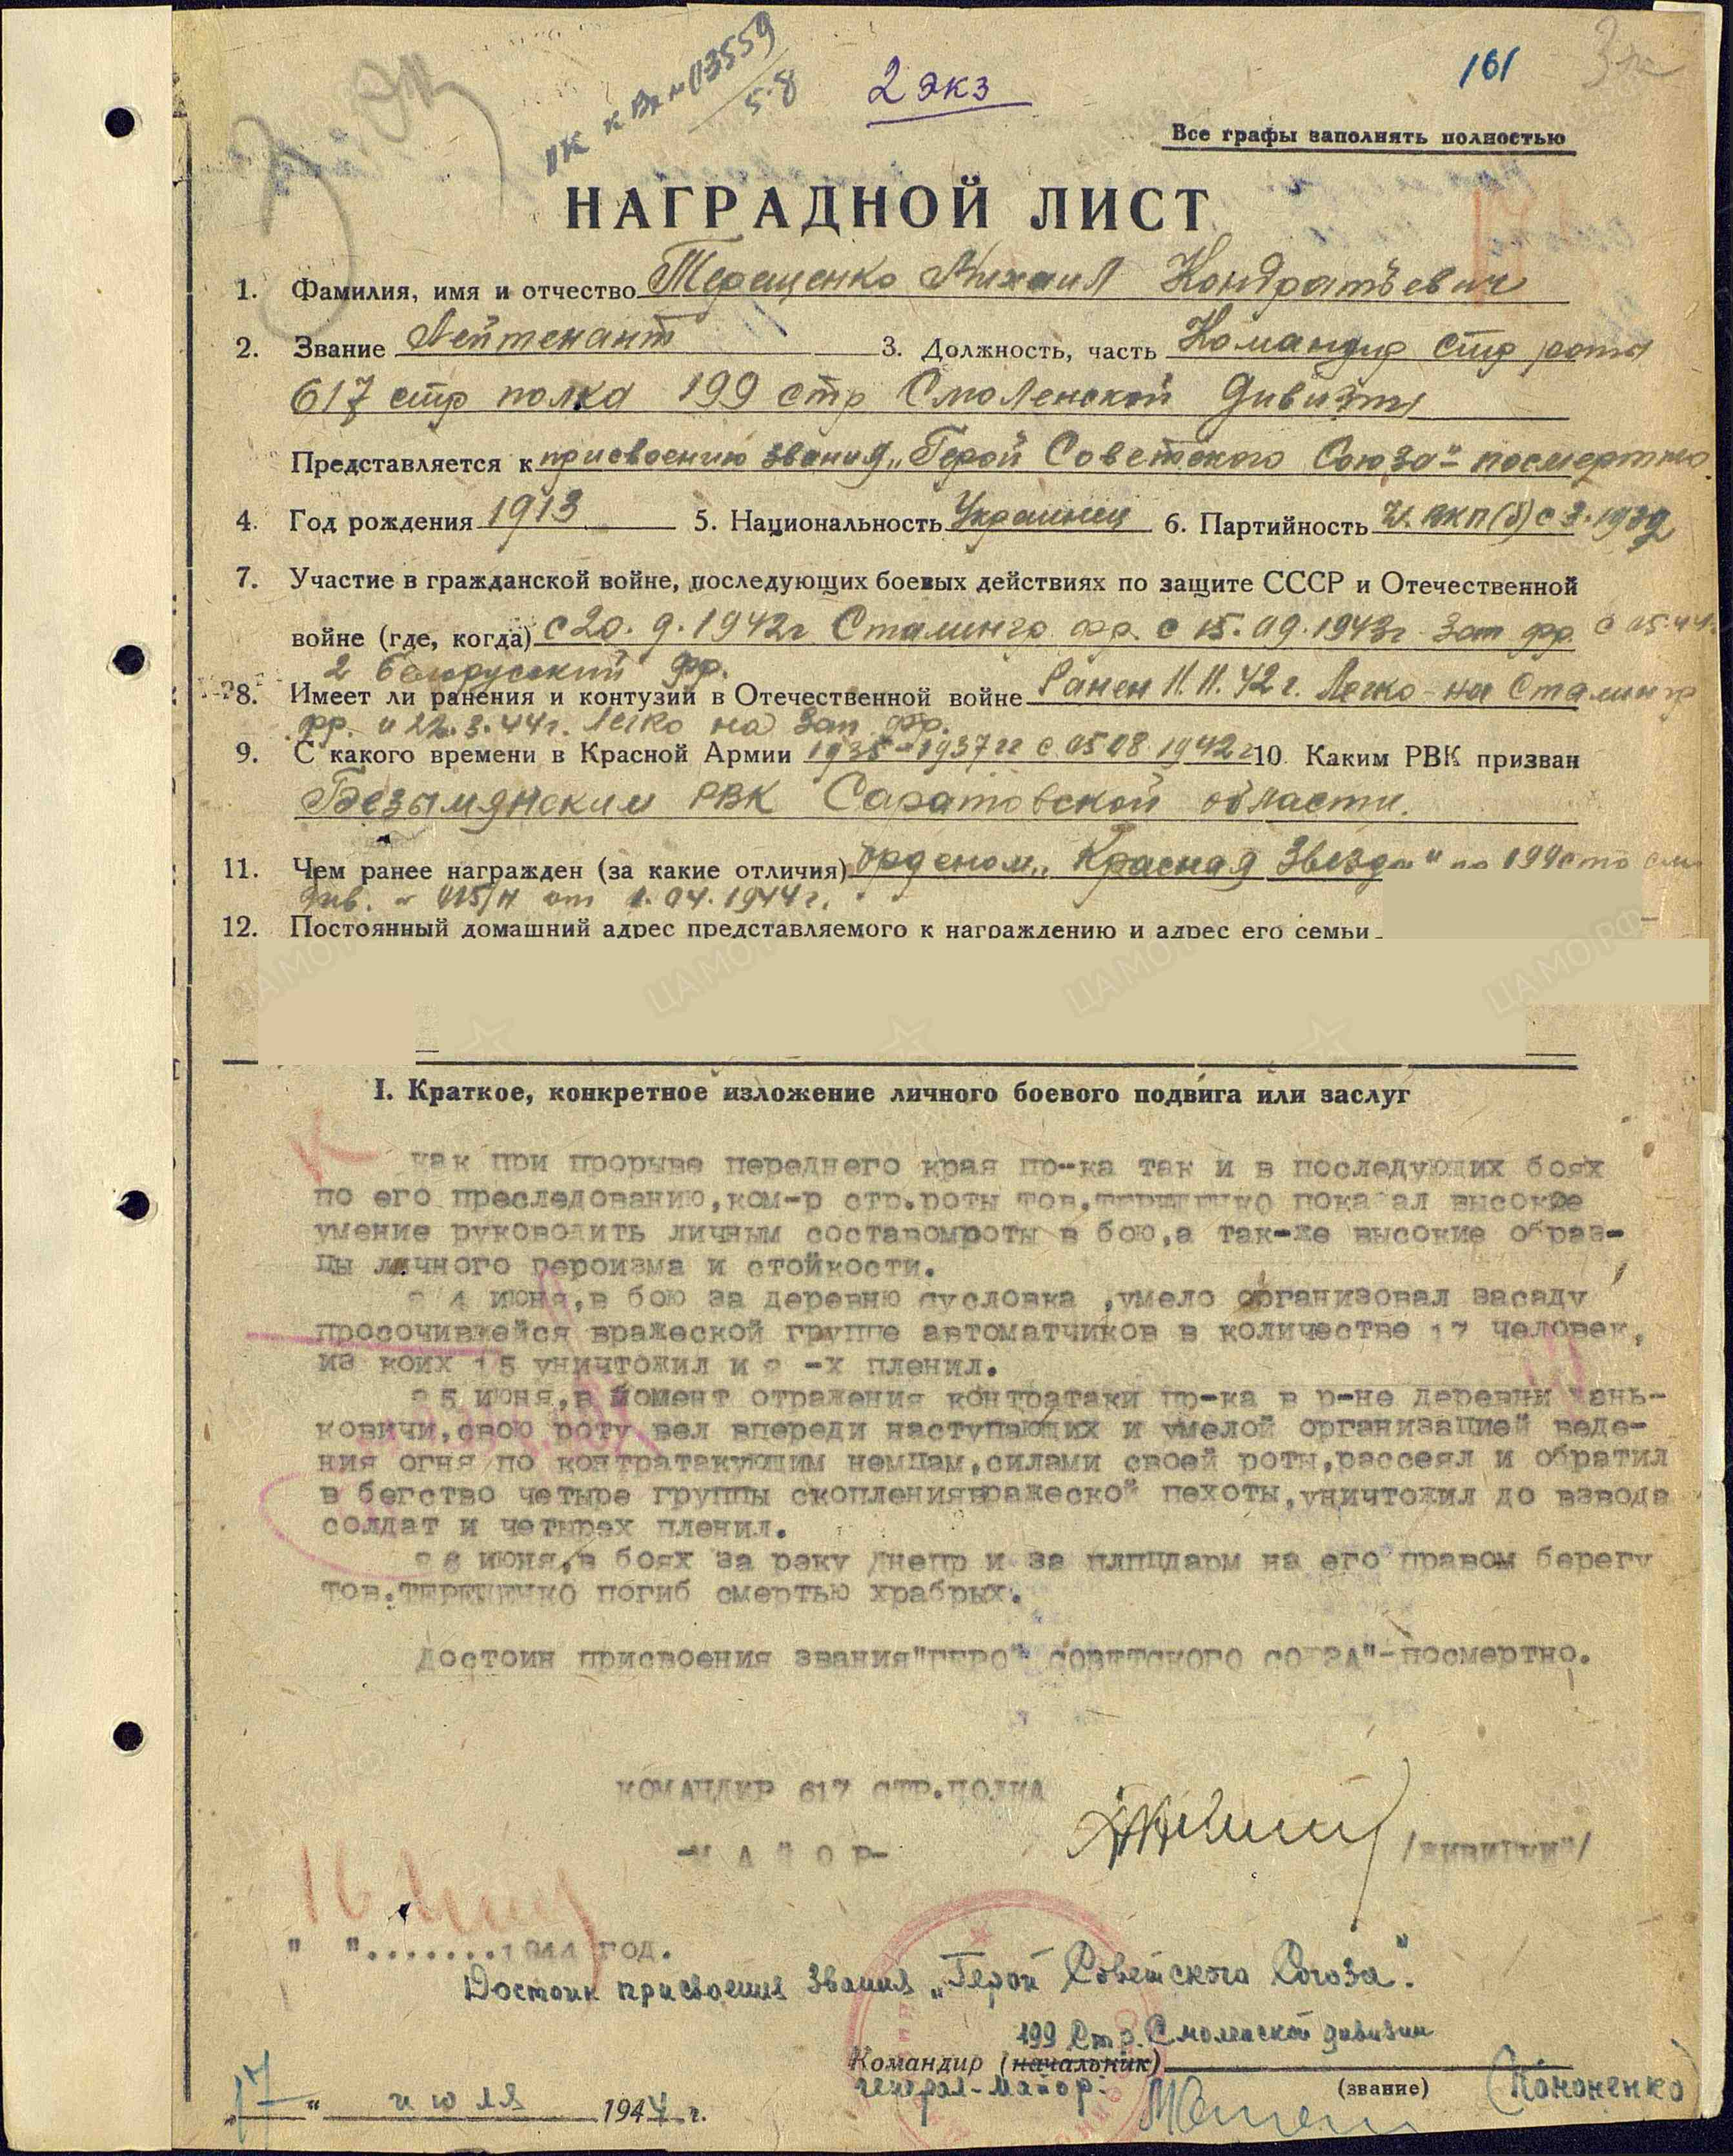 2 экз
161
5.8
Все графы заполнять полностью
НАГРАДНОЙ ЛИСТ
1. Фамилия, имя и отчество Терещенко Михаил Кондратьевич
2. Звание Лейтенант 3. Должность, часть Командир стр роты
617 стр полка 199 стр Смоленской дивизии
Представляется к присвоению звания „Герой Советского Союза"- посмертно.
4. Год рождения 1913 5. Национальность Украинец 6. Партийность ч. ВКП(б) с 3.1939
7. Участие в гражданской войне, последующих боевых действиях по защите СССР и Отечественной
войне (где, когда) с 20.9.1942г Сталингр. фр. с 15.09.1943г Зап фр. с 05.44.
2 Белорусский фр.
8. Имеет ли ранения и контузии в Отечественной войне Ранен 11.11.42г. Легко на Сталингр
фр. и 22.3.44г. легко на Зап фр.
9. С какого времени в Красной Армии 1935-1937 гг с 05 08 1942г 10 Каким РВК призван
Безымянским РВК Саратовской области.
11. Чем ранее награжден (за какие отличия) Орденом „Красная Звезда" по 199 стр См
див. № 015/н от 1.04.1944г.
12. Постоянный домашний адрес представляемого к награждению и адрес его семьи
I. Краткое, конкретное изложение личного боевого подвига или заслуг
Как при прорыве переднего края пр-ка так и в последующих боях
по его преследованию,ком-р стр.роты тов.ТЕРЕЩЕНКО показал высокое
умение руководить личным составомроты в бою,а так-же высокие образ-
цы личного героизма и стойкости.
24 июня,в бою за деревню Сусловка ,умело организовал засаду
просочившейся вражеской группе автоматчиков в количестве 17 человек,
из коих 15 уничтожил и 2 -х пленил.
25 июня,в момент отражения контратаки пр-ка в р-не деревни ань-
ковичи,свою роту вел впереди наступающих и умелой организацией веде-
ния огня по контратакующим немцам,силами своей роты,рассеял и обратил
в бегство четыре группы скоплениявражеской пехоты,уничтожил до взвода
солдат и четырех пленил.
28 июня,в боях за реку Днепр и за плпцдарм на его правом берегу
тов.ТЕРЕЩЕНКО погиб смертью храбрых.
Достоин присвоения звания"ГЕРОЙ СОВЕТСКОГО СОЮЗА"-посмертно.
КОМАНДИР 617 СТР.ПОЛКА
-М А Й О Р-
" ".......1944 год.
Достоин присвоения звания „Герой Советского Союза".
199 Стр. Смоленской дивизии
Командир (начальник)
генерал-майор:
(звание)
(Кононенко)
„17" июля 1944 г.
ЦАМО РФ